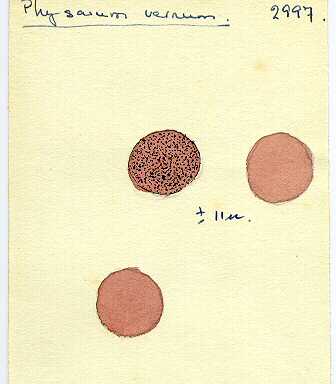 Physarum vernum. 2997.
± 11µ.